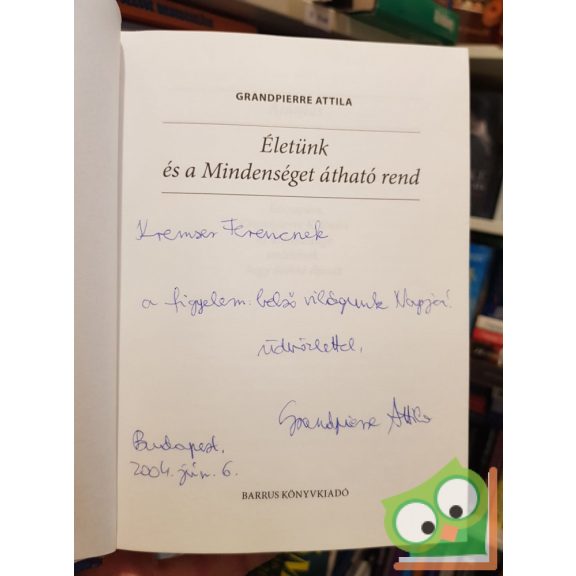 GRANDPIERRE ATTILA
Életünk
és a Mindenséget átható rend
Kremser Ferencnek
a figyelem: belső világunk Napja!
üdvözlettel,
Grandpierre Attila
Budapest,
2004. jún. 6.
BARRUS KÖNYVKIADÓ